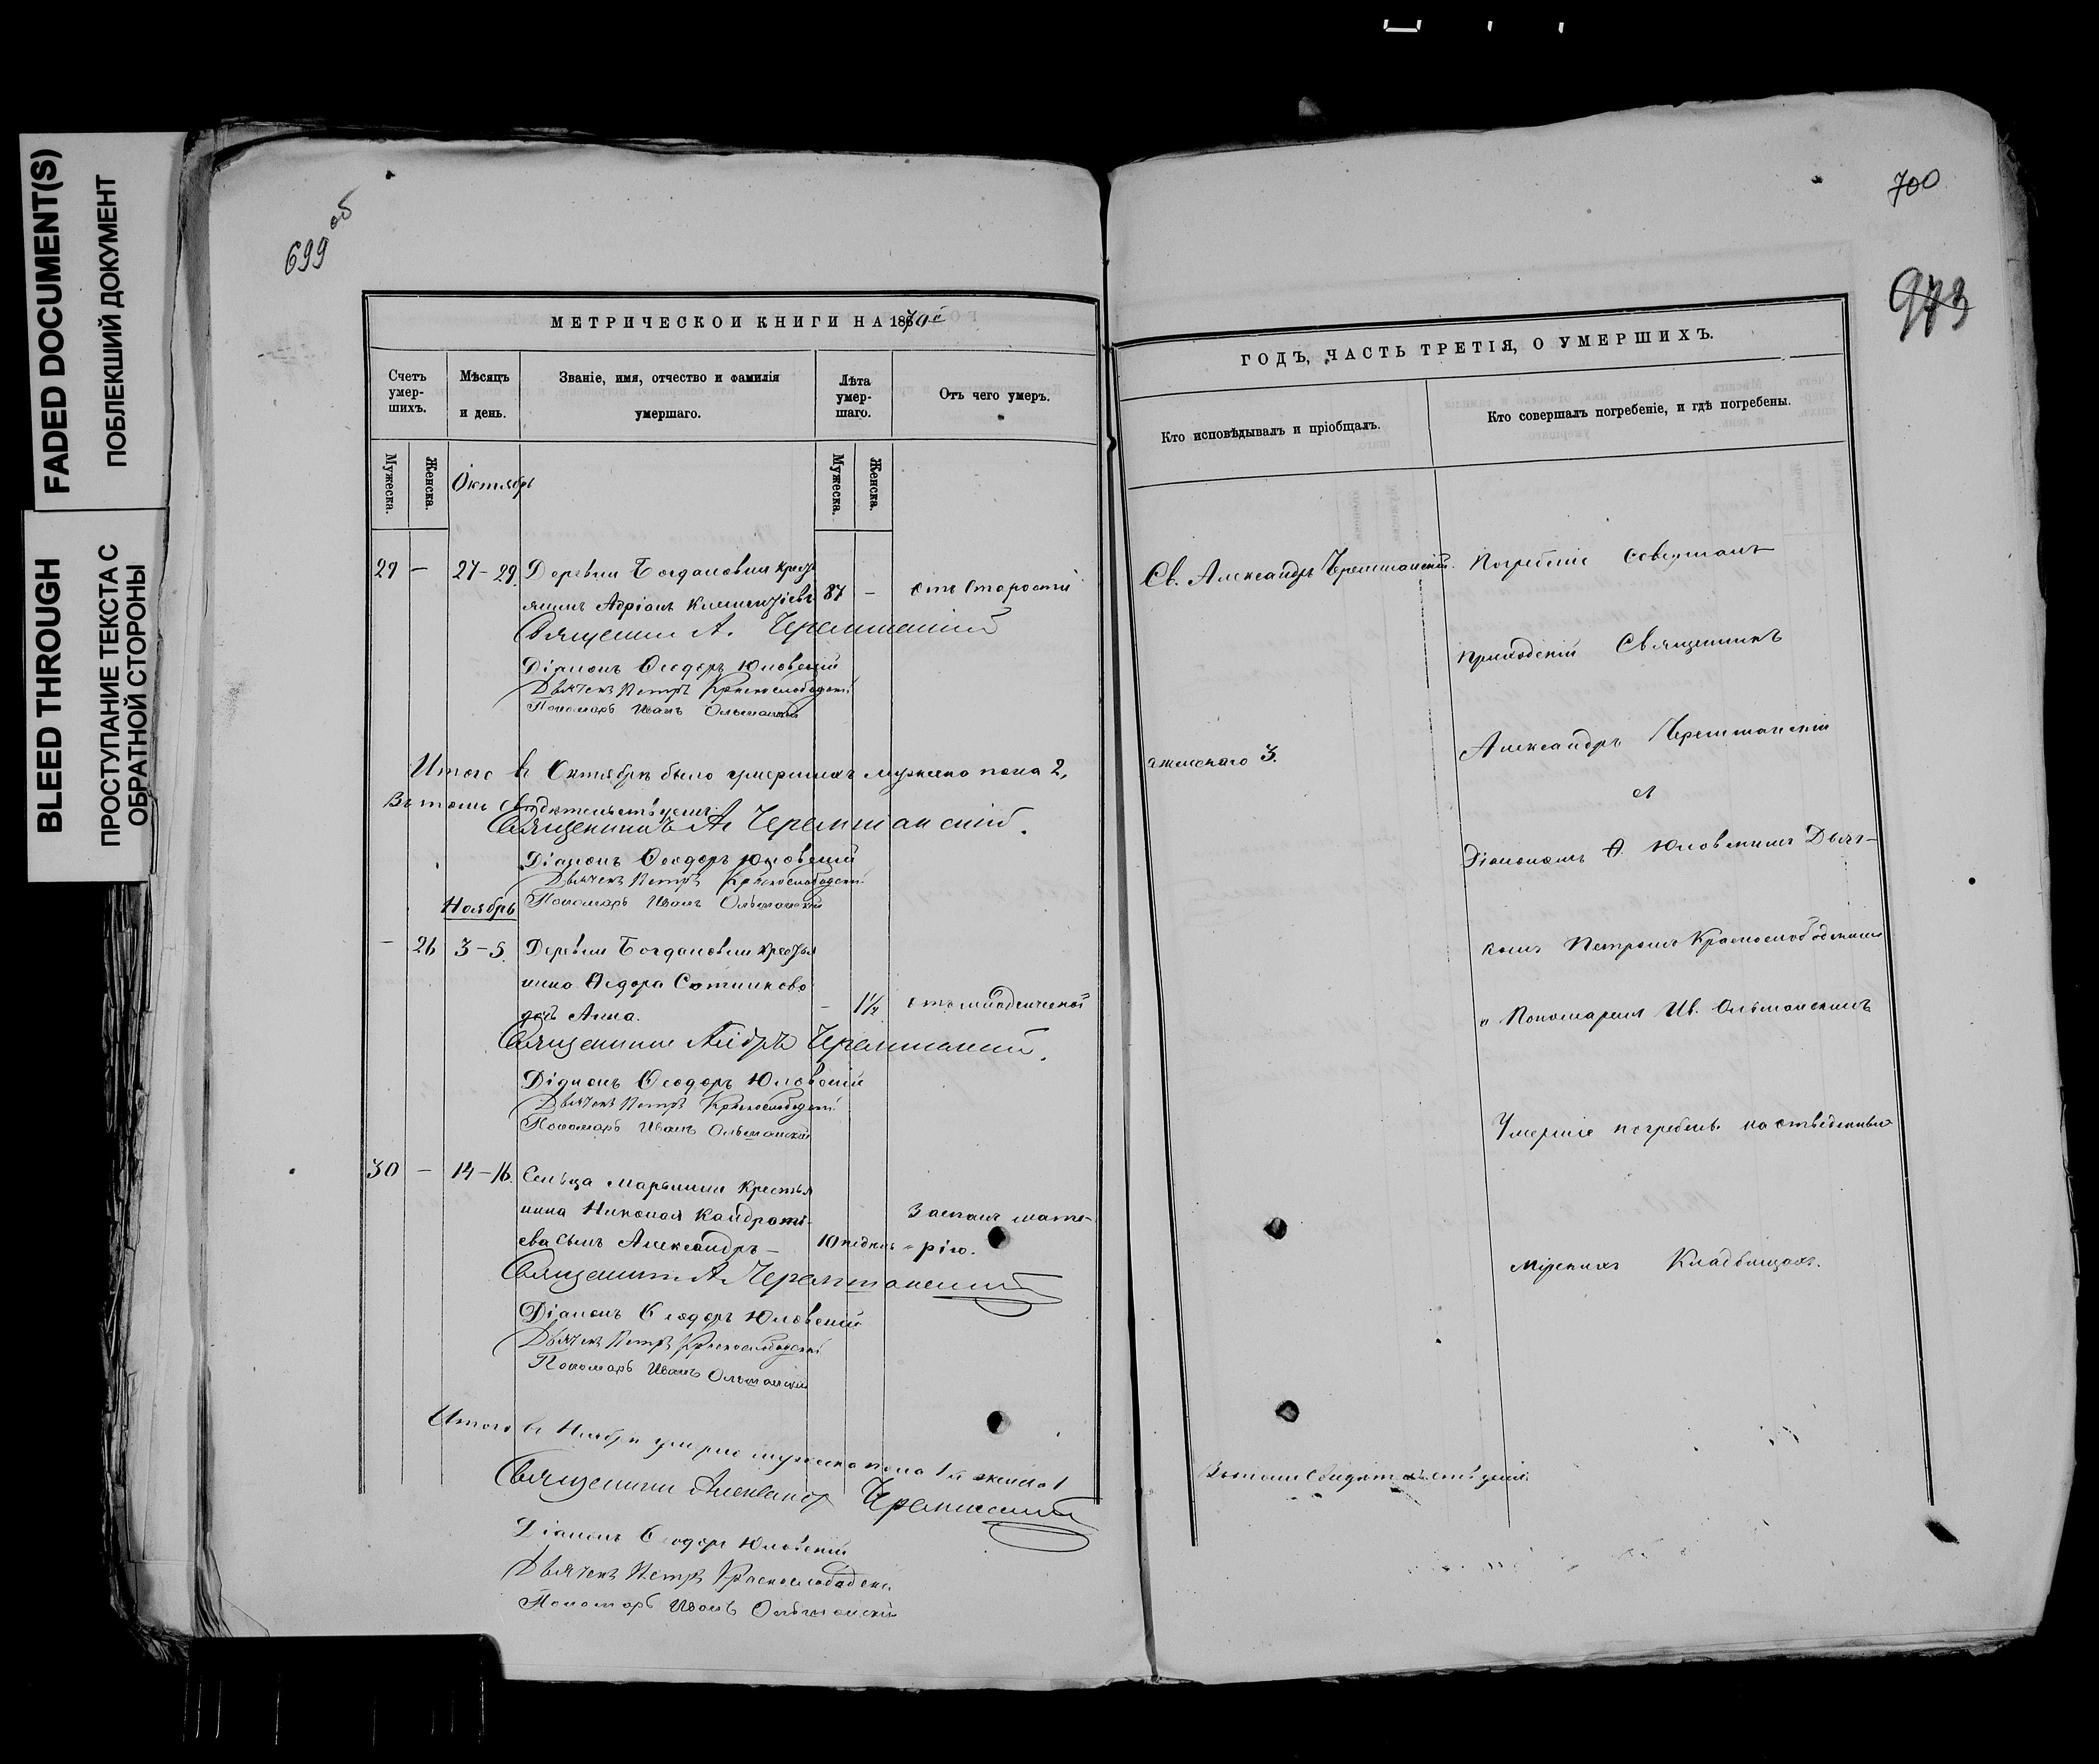 FADED DOCUMENT(S)
ПОБЛЕКШИЙ ДОКУМЕНТ
BLEED THROUGH
ПРОСТУПАНИЕ ТЕКСТА С
ОБРАТНОЙ СТОРОНЫ
699 об
МЕТРИЧЕСКОЙ КНИГИ НА 1870й
Счетъ умер-шихъ.
Мѣсяцъ и день.
Званіе, имя, отчество и фамилія умершаго.
Лѣта умер-шаго.
Отъ чего умеръ.
Мужеска.
Женска.
Октябрь
Мужеска.
Женска.
29 — 27–29. Деревни Богдановки кресть
янинъ Адріанъ Климентіевъ 87 — отъ старости
Священникъ А. Черемшанскій
Діаконъ Ѳеодоръ Юловскій
Дьячекъ Петръ Краснослободскій
Пономарь Иванъ Ольшанскій
Итого въ Октябрѣ было умершихъ мужеска пола 2,
Въ томъ свидѣтельствуемъ:
Священникъ А. Черемшанскій.
Діаконъ Ѳеодоръ Юловскій
Дьячекъ Петръ Краснослободскій
Пономарь Иванъ Ольшанскій
Ноябрь
— 26 3–5. Деревни Богдановки крестья
нина Ѳедора Сотникова
дочь Анна. — 1½ отъ младенческой
Священникъ Алдръ Черемшанскій.
Діаконъ Ѳеодоръ Юловскій
Дьячекъ Петръ Краснослободскій
Пономарь Иванъ Ольшанскій
30 — 14–16. Сельца Марьинки крестья
нина Николая Кандрать- Заспанъ мате-
ева сынъ Александръ — 10 недѣль - рію.
Священникъ А. Черемшанскій
Діаконъ Ѳеодоръ Юловскій
Дьячекъ Петръ Краснослободскій
Пономарь Иванъ Ольшанскій
Итого въ Ноябрѣ умерло мужеска пола 1 и женска 1
Священникъ Александр Черемшанскій
Діаконъ Ѳеодоръ Юловскій
Дьячекъ Петръ Краснослободскій
Пономарь Иванъ Ольшанскій
700
973
ГОДЪ, ЧАСТЬ ТРЕТІЯ, О УМЕРШИХЪ.
Кто исповѣдывалъ и пріобщалъ.
Кто совершалъ погребеніе, и гдѣ погребены.
Св. Александръ Черемшанскій. Погребеніе совершалъ
приходскій Священникъ
Александръ Черемшанскій
а женскаго 3.
съ
Діакономъ Ѳ. Юловскимъ Дьяч-
комъ Петромъ Краснослободскимъ
и Пономаремъ Ив. Ольшанскимъ
Умершіе погребены на отведенныхъ
мірскихъ Кладбищахъ.
Въ томъ свидѣтельствуемъ: